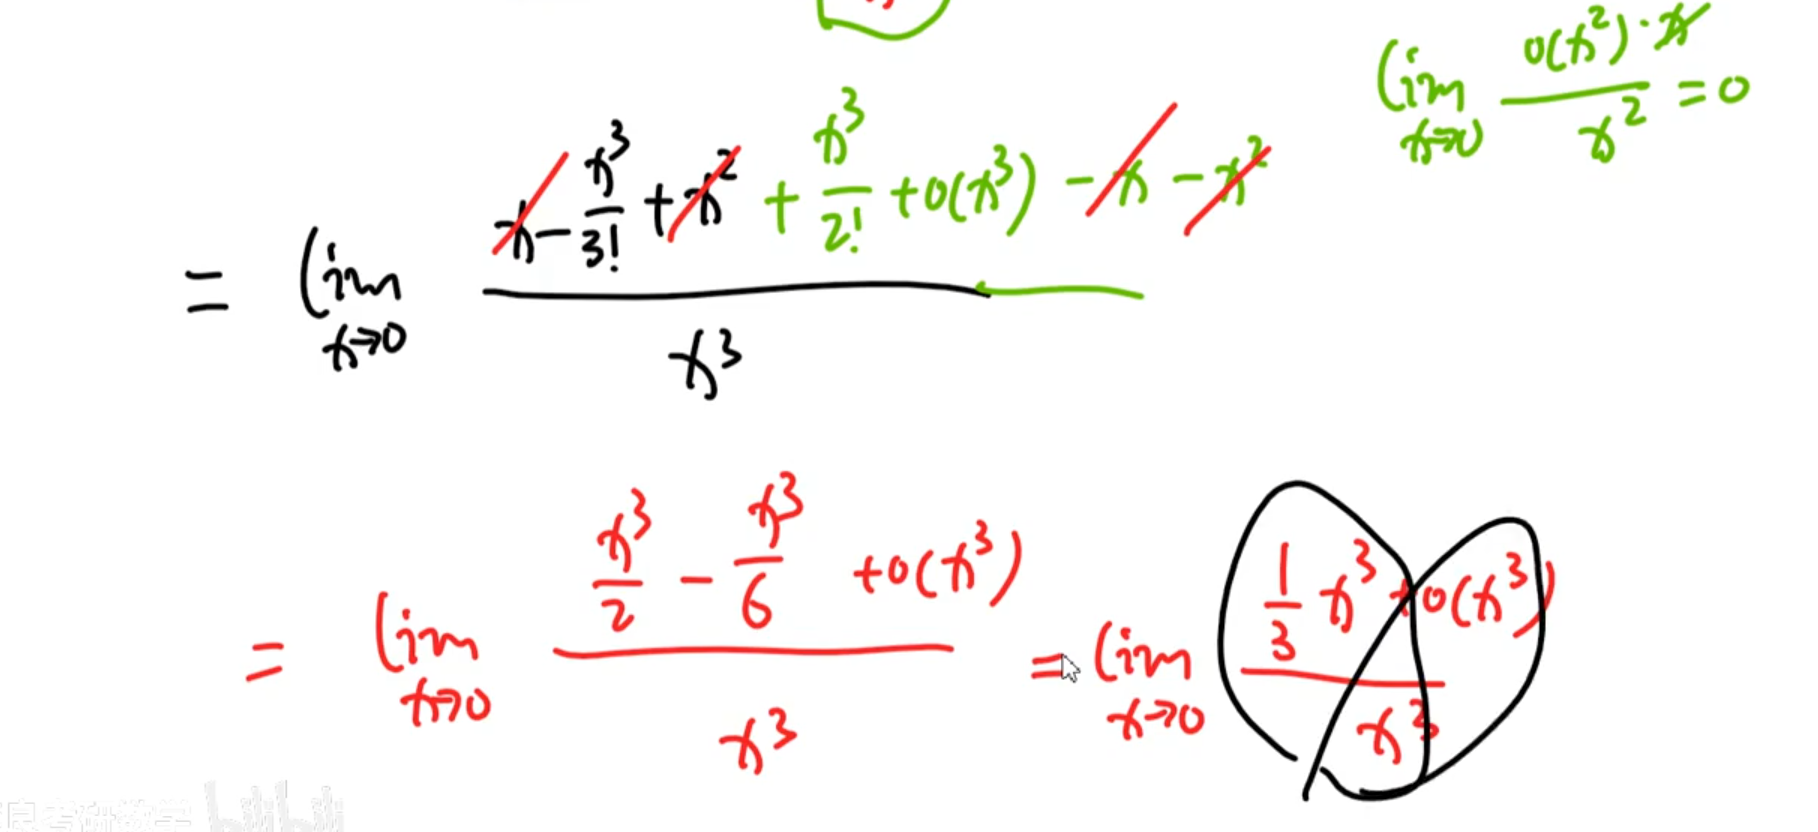 lim x→0 o(x²)·x / x² = 0
= lim x→0 (x - x³/3! + x² + x³/2! + o(x³) - x - x²) / x³
= lim x→0 (x³/2 - x³/6 + o(x³)) / x³ = lim x→0 (1/3 x³ + o(x³)) / x³
良考研数学 bilibili